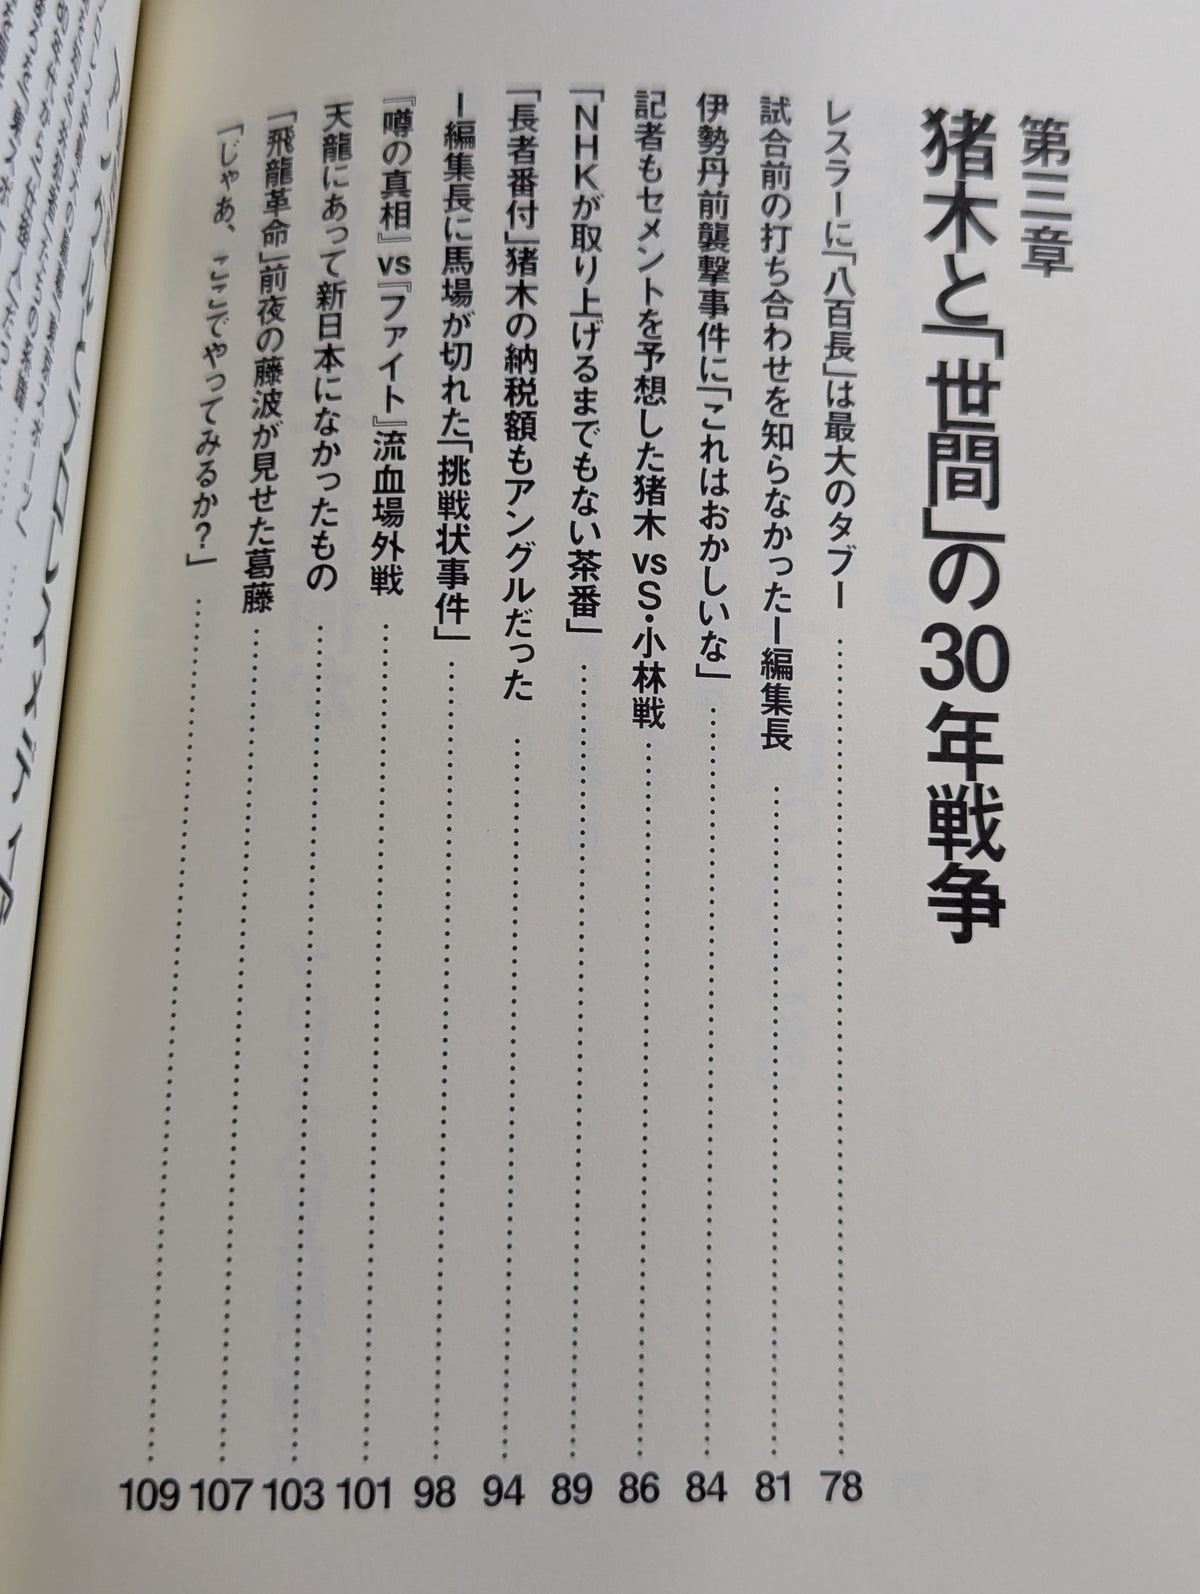 第三章
猪木と「世間」の30年戦争
レスラーに「八百長」は最大のタブー ……… 78
試合前の打ち合わせを知らなかったI編集長 ……… 81
伊勢丹前襲撃事件に「これはおかしいな」 ……… 84
記者もセメントを予想した猪木vsS・小林戦 ……… 86
「NHKが取り上げるまでもない茶番」 ……… 89
「長者番付」猪木の納税額もアングルだった ……… 94
I編集長に馬場が切れた「挑戦状事件」 ……… 98
『噂の真相』vs『ファイト』流血場外戦 ……… 101
天龍にあって新日本になかったもの ……… 103
「飛龍革命」前夜の藤波が見せた葛藤 ……… 107
「じゃあ、ここでやってみるか？」 ……… 109